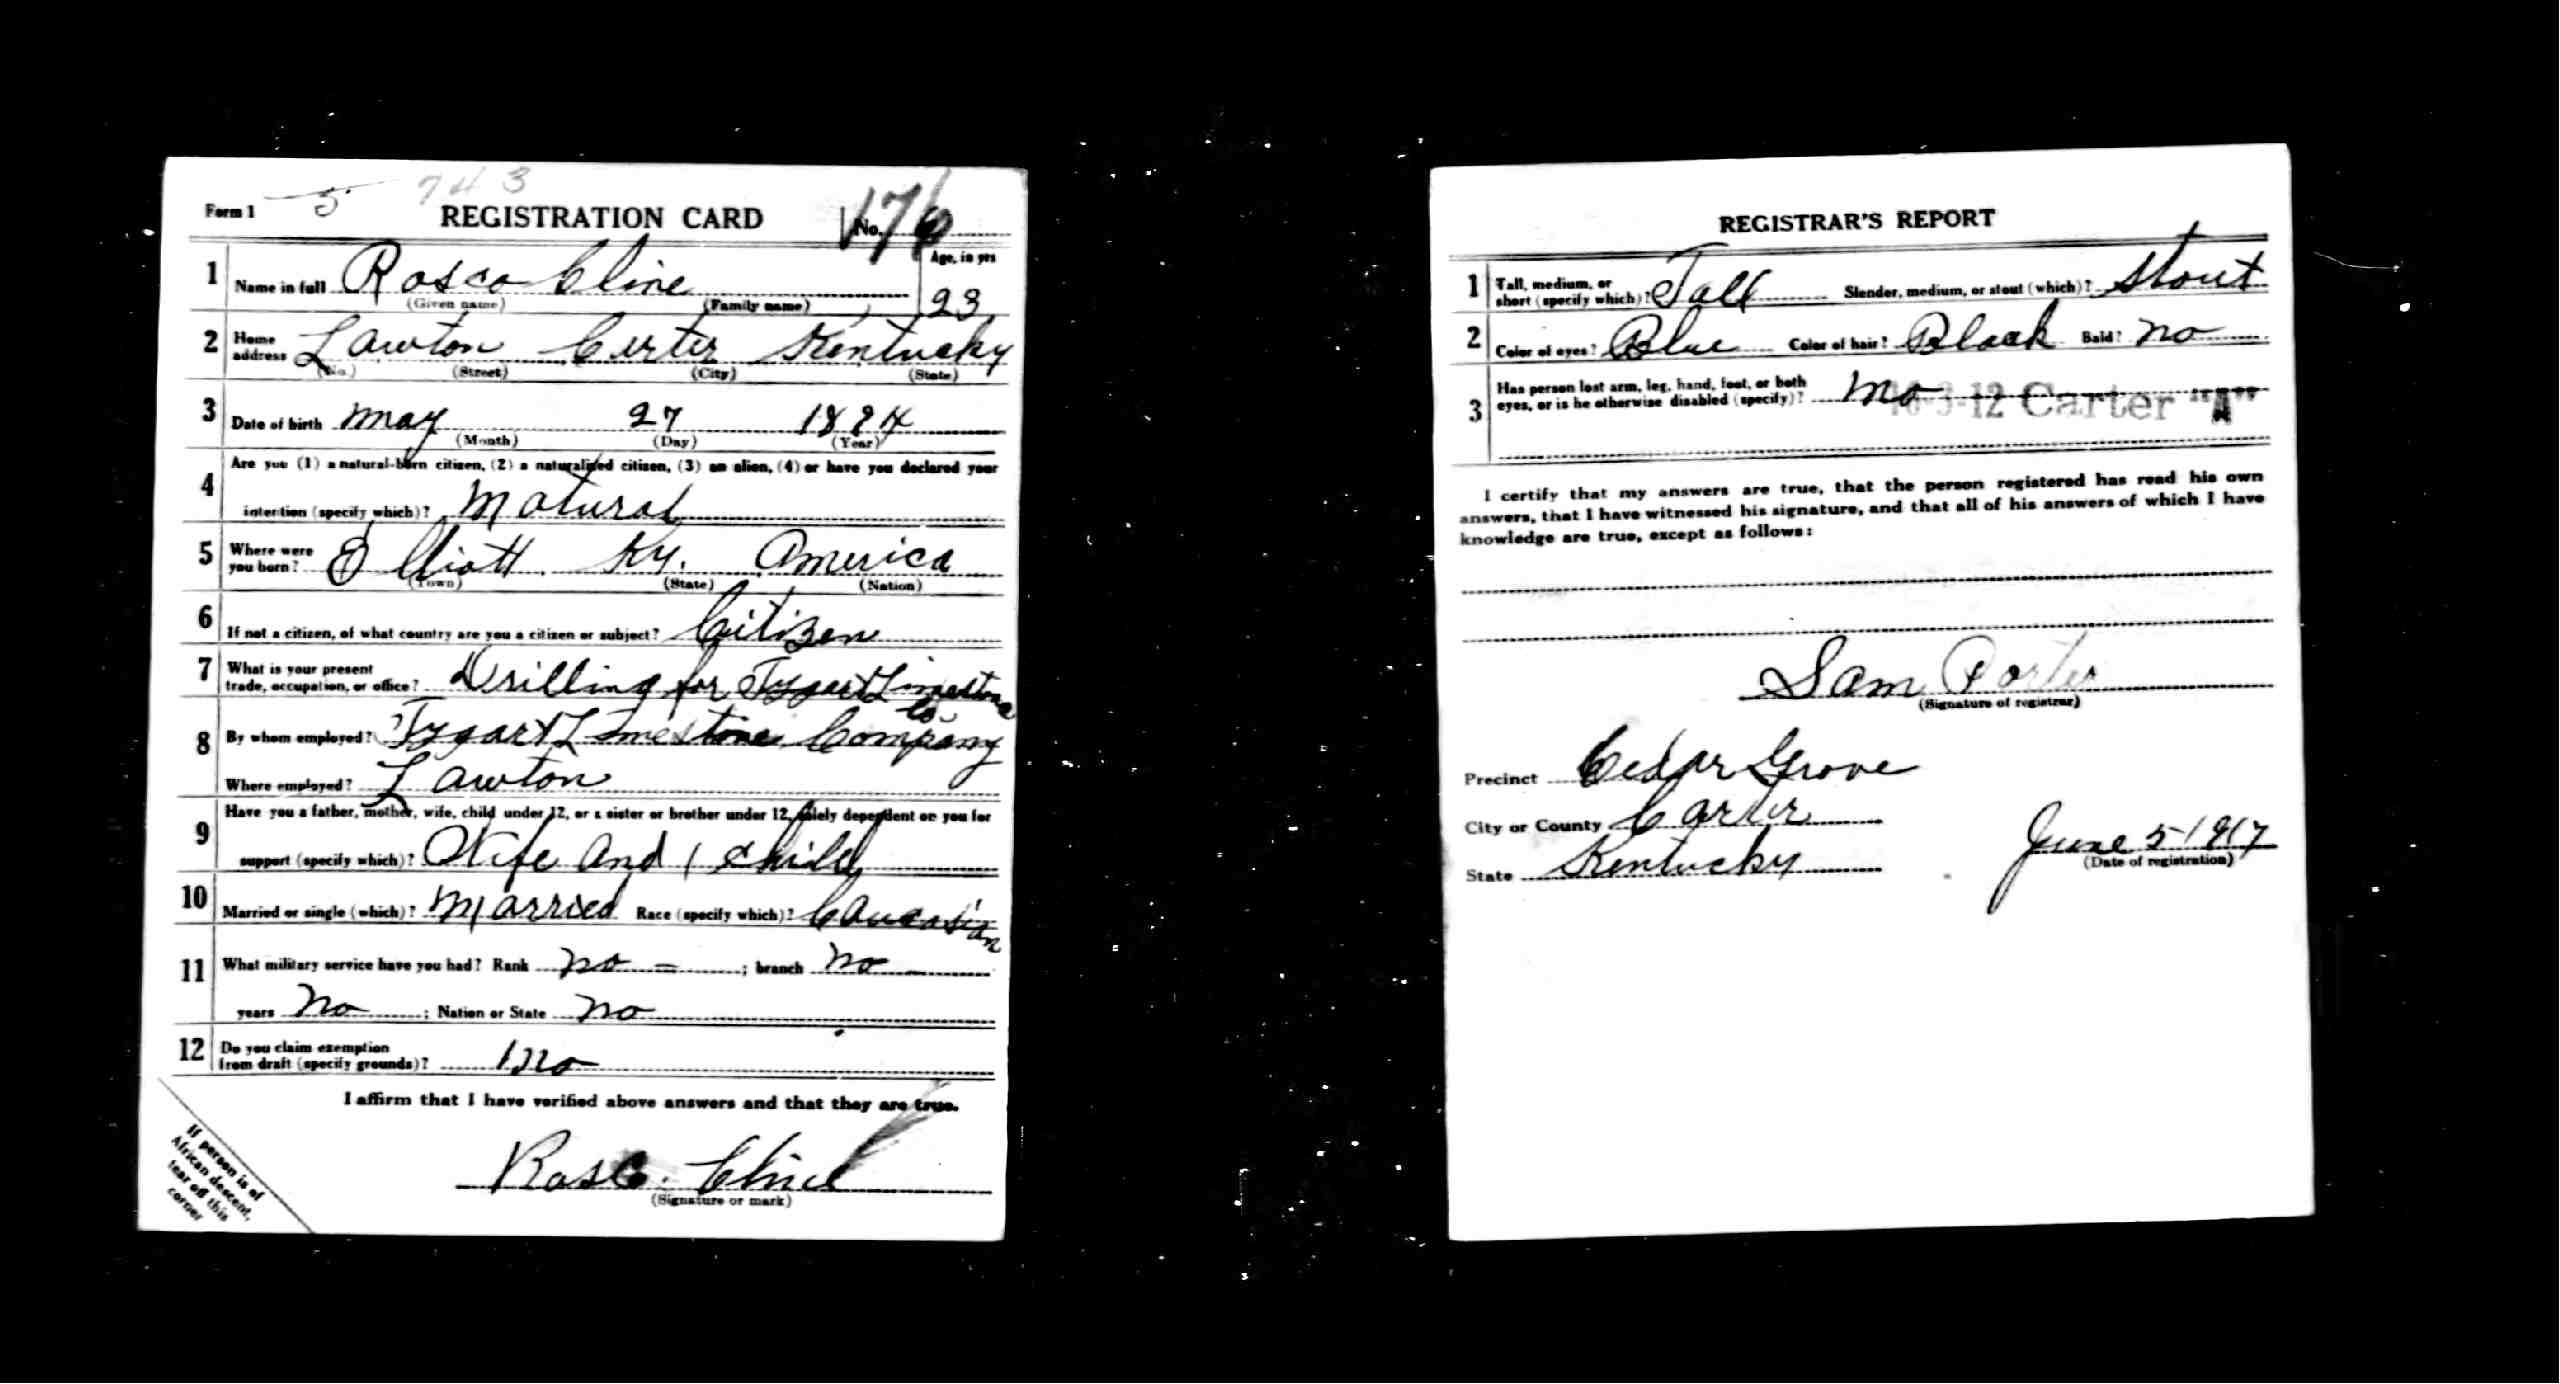 Form 1 5 743
REGISTRATION CARD No. 176
1 Name in full Rosco Cline Age, in yrs
(Given name) (Family name) 23
2 Home address Lawton Certer Kentucky
(No.) (Street) (City) (State)
3 Date of birth May 27 1894
(Month) (Day) (Year)
4 Are you (1) a natural-born citizen, (2) a naturalized citizen, (3) an alien, (4) or have you declared your
intention (specify which)? Natural
5 Where were you born? Elliott Ky. America
(Town) (State) (Nation)
6 If not a citizen, of what country are you a citizen or subject? Citizen
7 What is your present
trade, occupation, or office? Drilling for Tygart Limestone Co.
8 By whom employed? Tygart Limestone Company
Where employed? Lawton
9 Have you a father, mother, wife, child under 12, or a sister or brother under 12, solely dependent on you for
support (specify which)? Wife And 1 child
10 Married or single (which)? Married Race (specify which)? Caucasian
11 What military service have you had? Rank no ; branch no
years no ; Nation or State no
12 Do you claim exemption
from draft (specify grounds)? no
I affirm that I have verified above answers and that they are true.
Rosco Cline
(Signature or mark)
If person is of
African descent,
tear off this
corner
REGISTRAR'S REPORT
1 Tall, medium, or
short (specify which)? Tall Slender, medium, or stout (which)? Stout
2 Color of eyes? Blue Color of hair? Black Bald? no
3 Has person lost arm, leg, hand, foot, or both
eyes, or is he otherwise disabled (specify)? no 16-3-12 Carter "A"
I certify that my answers are true, that the person registered has read his own
answers, that I have witnessed his signature, and that all of his answers of which I have
knowledge are true, except as follows:
Sam Porter
(Signature of registrar)
Precinct Cedar Grove
City or County Carter
State Kentucky June 5 1917
(Date of registration)